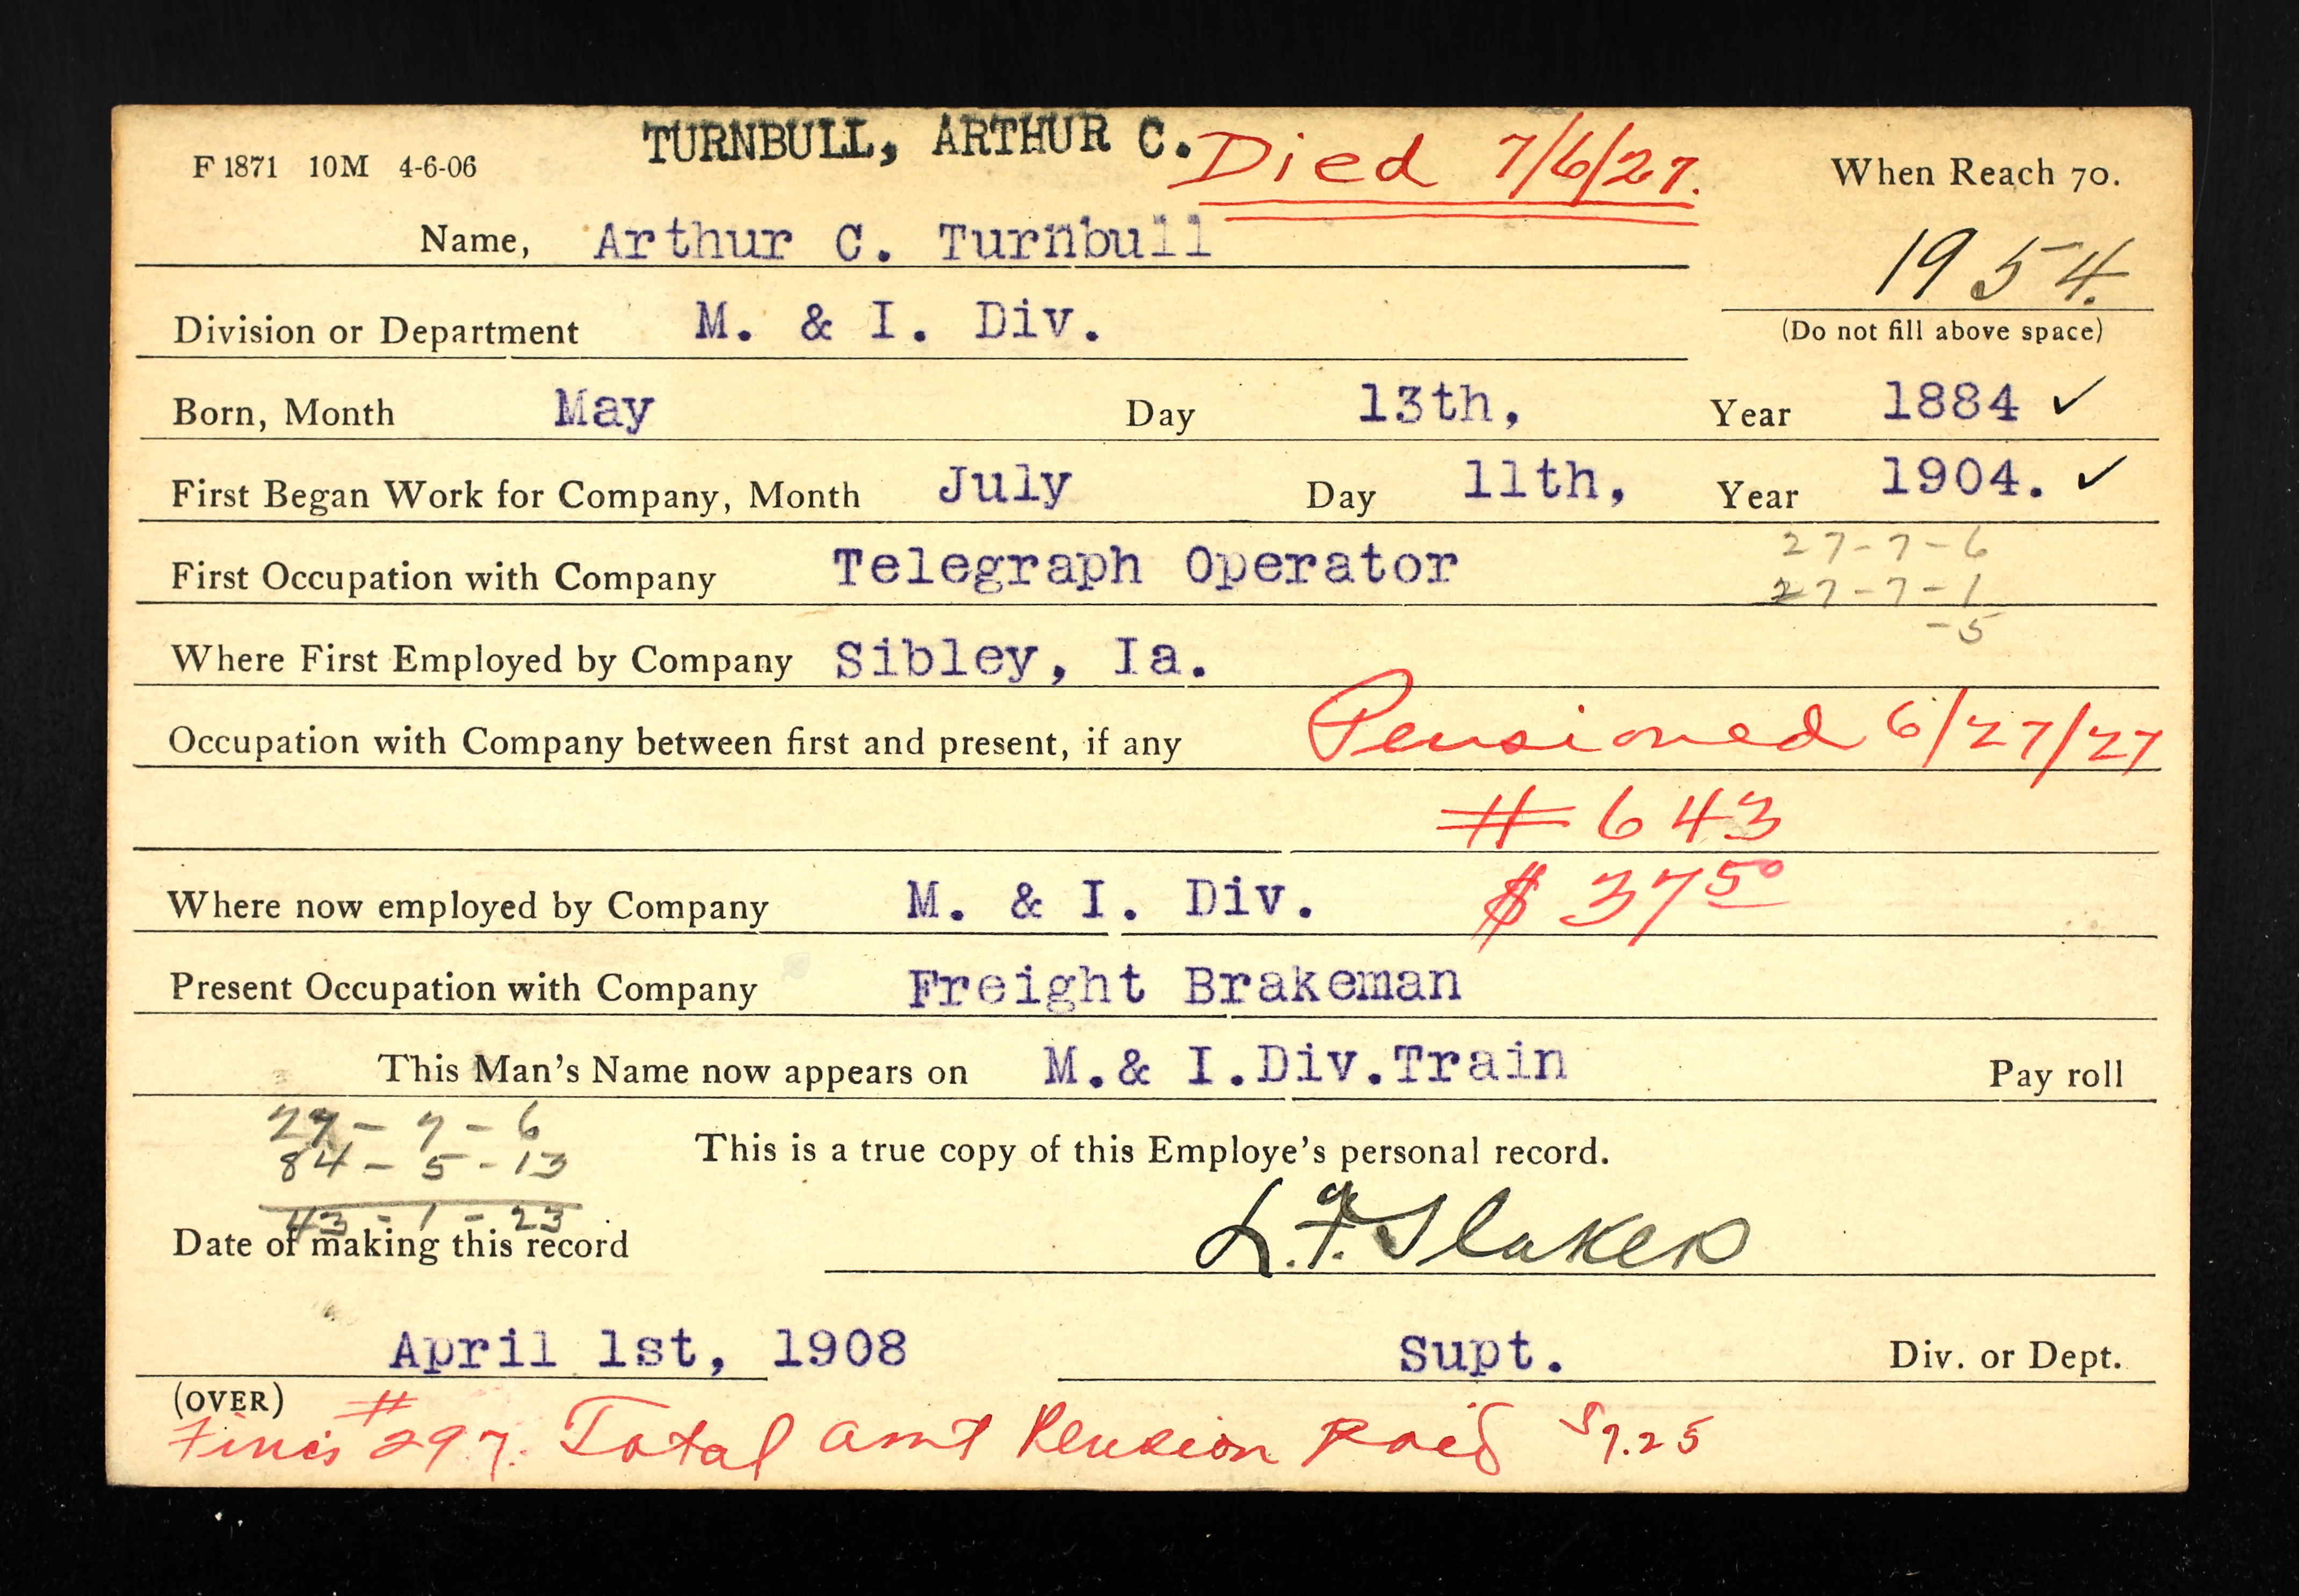 TURNBULL, ARTHUR C. Died 7/6/27.
F 1871 10M 4-6-06
When Reach 70.
Name, Arthur C. Turnbull
1954.
Division or Department M. & I. Div.
(Do not fill above space)
Born, Month May Day 13th, Year 1884 ✓
First Began Work for Company, Month July Day 11th, Year 1904. ✓
27-7-6
First Occupation with Company Telegraph Operator
27-7-1
-5
Where First Employed by Company Sibley, Ia.
Occupation with Company between first and present, if any Pensioned 6/27/27
# 643
$ 37 50
Where now employed by Company M. & I. Div.
Present Occupation with Company Freight Brakeman
This Man's Name now appears on M.& I.Div.Train Pay roll
27-7-6
84-5-13
43-1-23
This is a true copy of this Employe's personal record.
Date of making this record
L.F. Slaker
April 1st, 1908 Supt. Div. or Dept.
(OVER)
Finis #297. Total amt Pension Paid $7.25